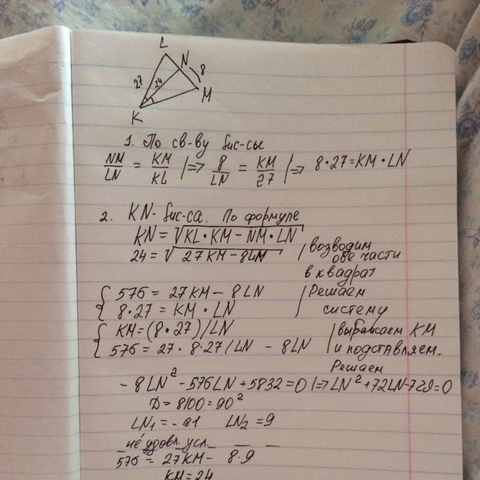 L
N
27
24
8
M
K
1. По св-ву бис-сы
NM/LN = KM/KL |⇒ 8/LN = KM/27 |⇒ 8·27=KM·LN
2. KN- бис-са. По формуле
KN = √KL·KM-NM·LN
24 = √27KM-8LN
| возводим обе части в квадрат
{ 576 = 27KM - 8LN
8·27 = KM·LN
| Решаем систему
{ KM=(8·27)/LN
576 = 27·8·27/LN - 8LN
| выражаем KM и подставляем.
Решаем
-8LN² -576LN+5832=0 |⇒LN²+72LN-729=0
D=8100=90²
LN₁=-81 LN₂=9
не удовл. усл.
576 = 27KM- 8·9
KM=24